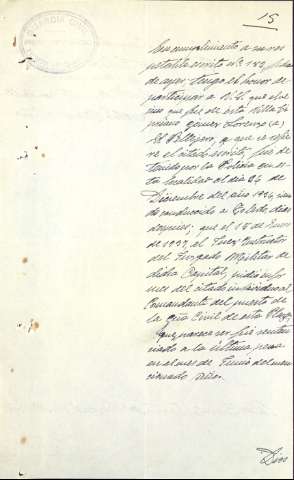 15
GUARDIA CIVIL
En cumplimiento a su res
petable escrito nº 182, fecha
de ayer, tengo el honor de
participar a V.S. que el ve
cino que fué de esta villa
Gómez Lorenzo (a)
El Pellejero, que se refie
re el citado escrito, fué de
tenido por la Policía en es
ta localidad el día 26 de
Diciembre del año 1936, sien
do conducido a Toledo días
despues; que el 15 de Enero
de 1937, el Juez Instructor
del Juzgado Militar de
dicha Capital, pidió infor
mes del citado individuo al
Comandante del puesto de
la Gua Civil de esta Plaza
que parece ser fué senten
ciado a la última pena
en el mes de Junio del men
cionado año.
Dios